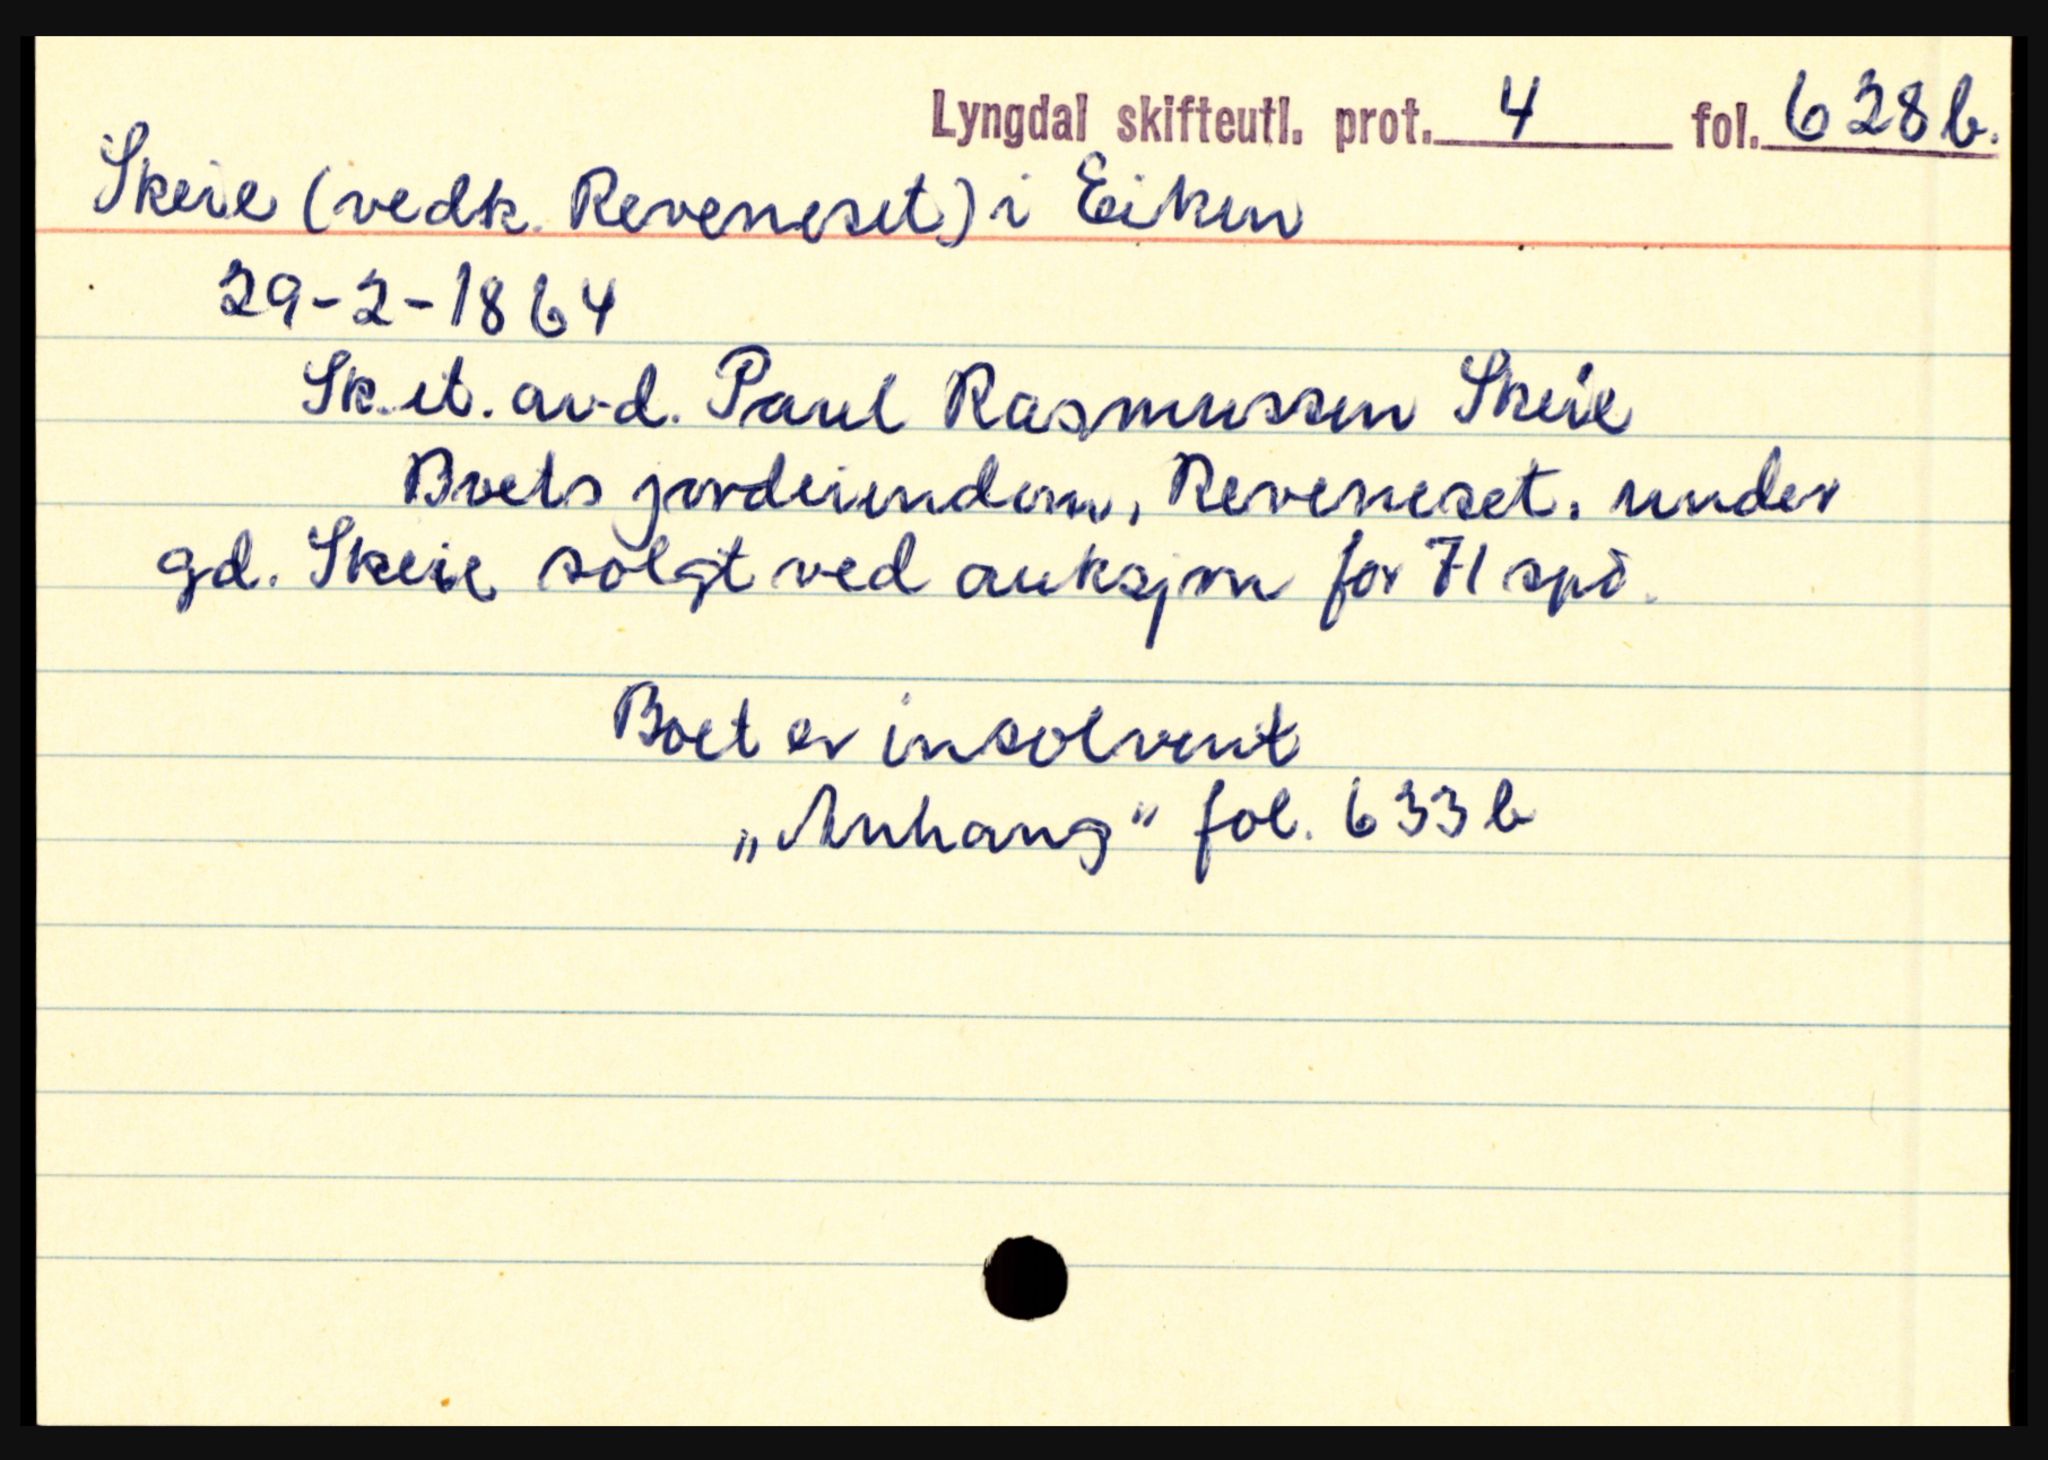 Lyngdal skifteutl. prot. 4 fol. 628b.
Skeie (vedk. Reveneset) i Eiken
29-2-1864
Sk. et. avd. Paul Rasmussen Skeie
Boets jordeiendom, Reveneset. under
gd. Skeie solgt ved auksjon for 71 spd.
Boet er insolvent
„Anhang" fol. 633b